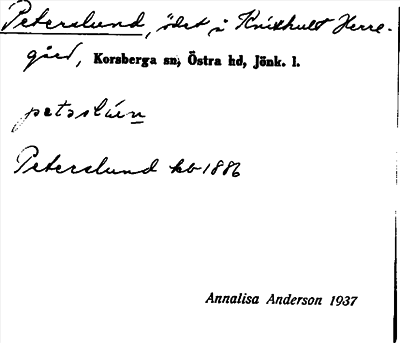 Peterslund, ödet u Knixhult Herre-
gård, Korsberga sn, Östra hd, Jönk. l.
Peterslund kb 1886
Annalisa Anderson 1937